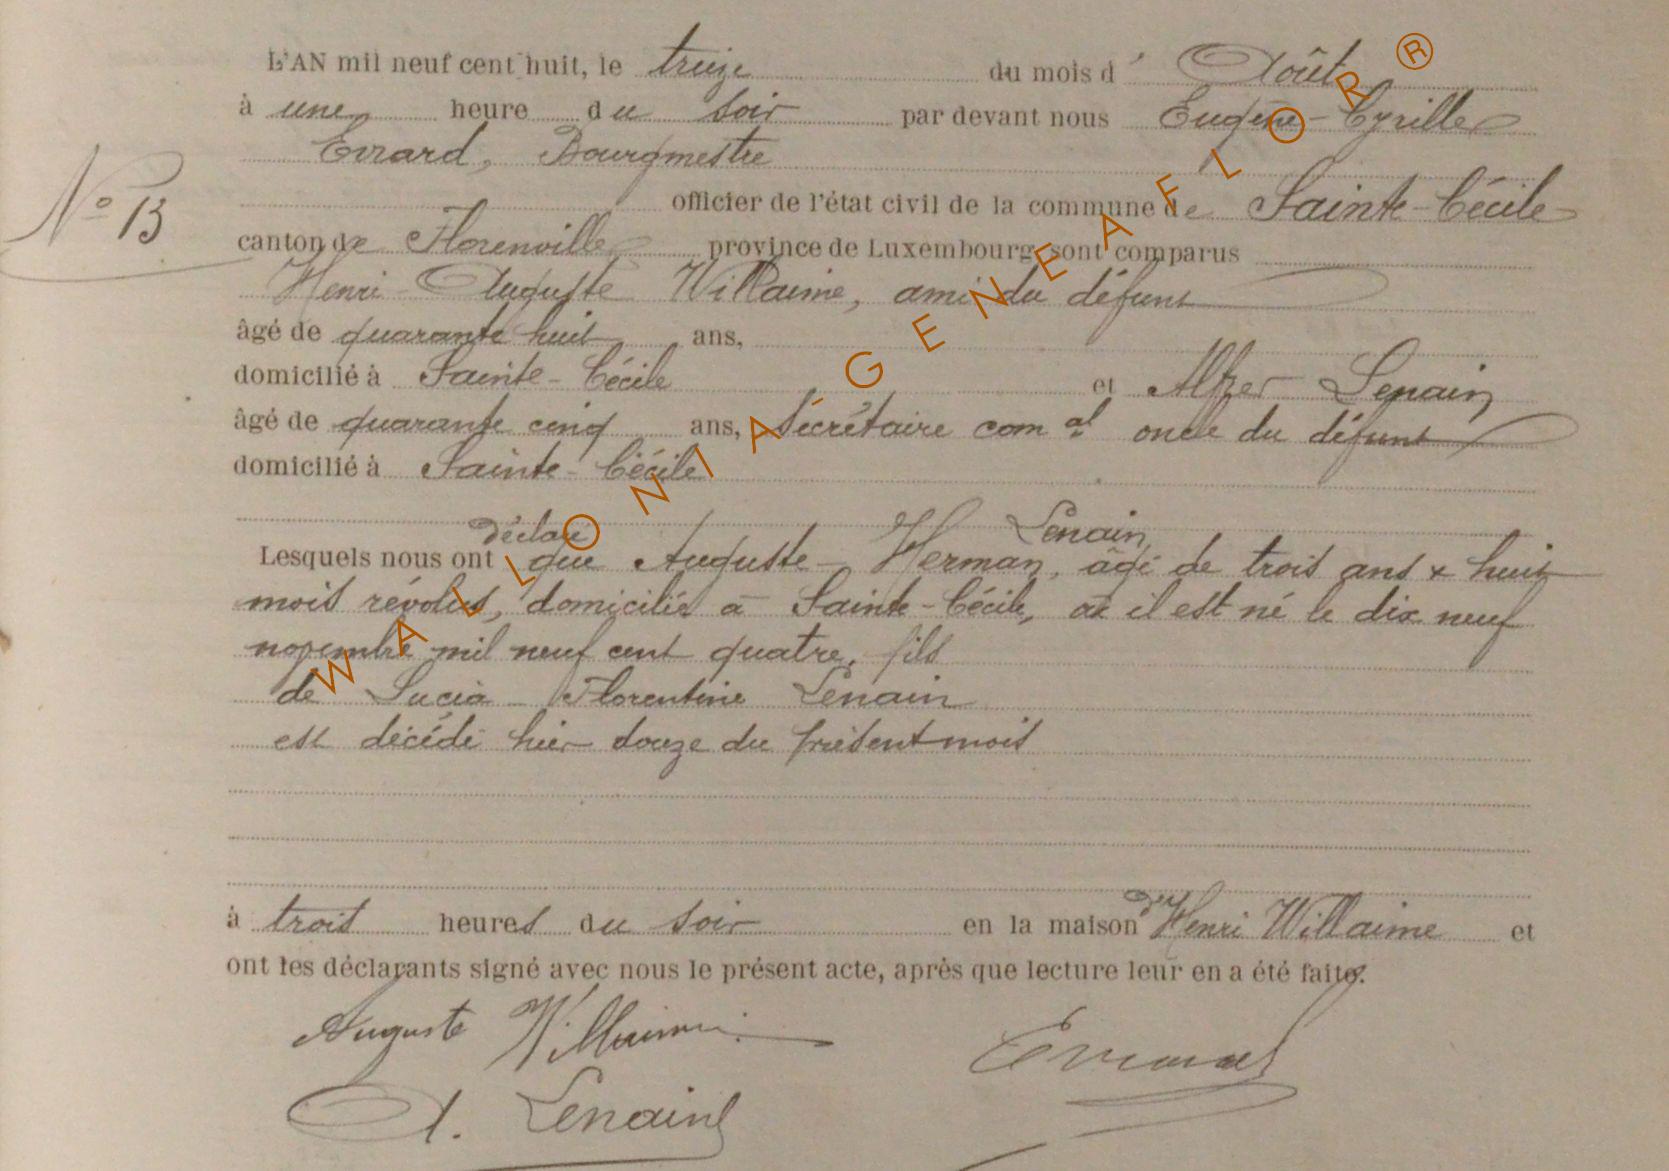 L'AN mil neuf cent huit, le treize du mois d' Août
à une heure du soir par devant nous Eugène-Cyrille
Evrard, Bourgmestre
officier de l'état civil de la commune de Sainte-Cécile
N° 13
canton de Florenville province de Luxembourg sont comparus
Henri Auguste Willaime, ami du défunt
âgé de quarante huit ans,
domicilié à Sainte-Cécile et Alfred Lenain
âgé de quarante cinq ans, Sécrétaire com al oncle du défunt
domicilié à Sainte-Cécile
déclaré Lenain,
Lesquels nous ont que Auguste-Herman, âgé de trois ans & huit
mois révolus, domicilié à Sainte-Cécile, où il est né le dix neuf
novembre mil neuf cent quatre, fils
de Lucia Florentine Lenain
est décédé hier douze du présent mois
à trois heures du soir en la maison de Henri Willaime et
ont les déclarants signé avec nous le présent acte, après que lecture leur en a été faite.
Auguste Willaime
Evrard
A. Lenain
WALLONIA-GENEAFLOR®